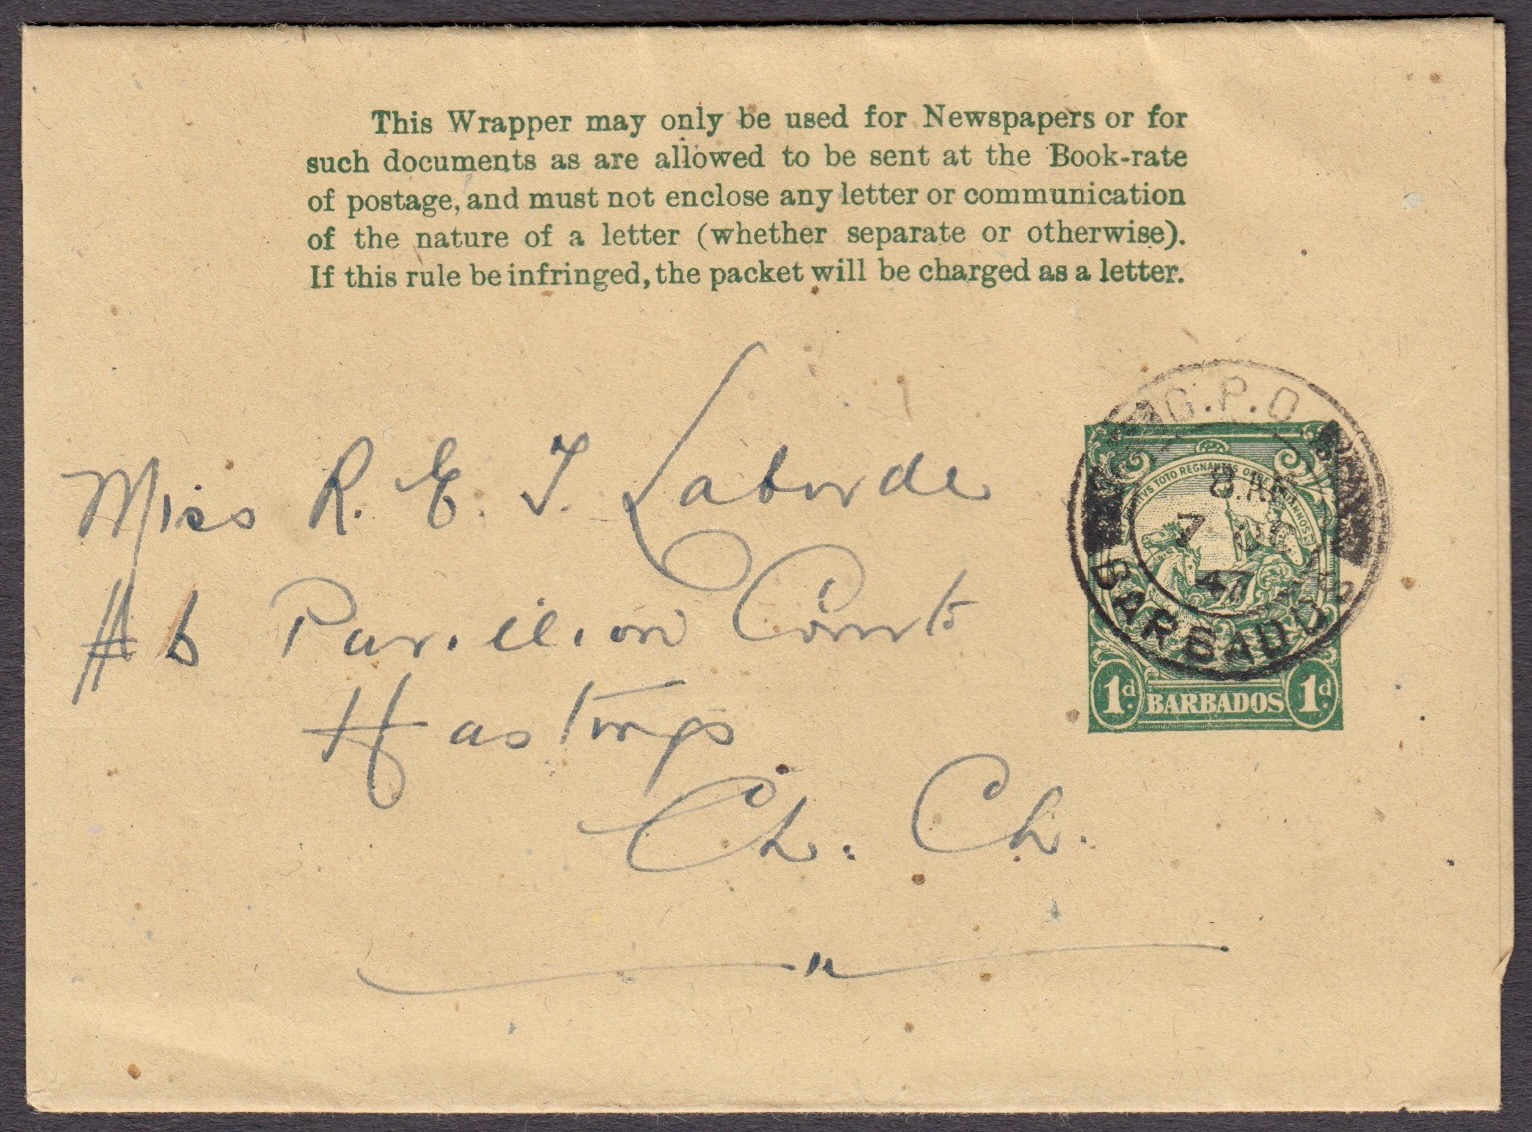 This Wrapper may only be used for Newspapers or for
such documents as are allowed to be sent at the Book-rate
of postage, and must not enclose any letter or communication
of the nature of a letter (whether separate or otherwise).
If this rule be infringed, the packet will be charged as a letter.
Miss R. E. T. Laborde
Pavilion Court
Hastings
Ch. Ch.
G.P.O.
7 DE
47
BARBADOS
1d BARBADOS 1d